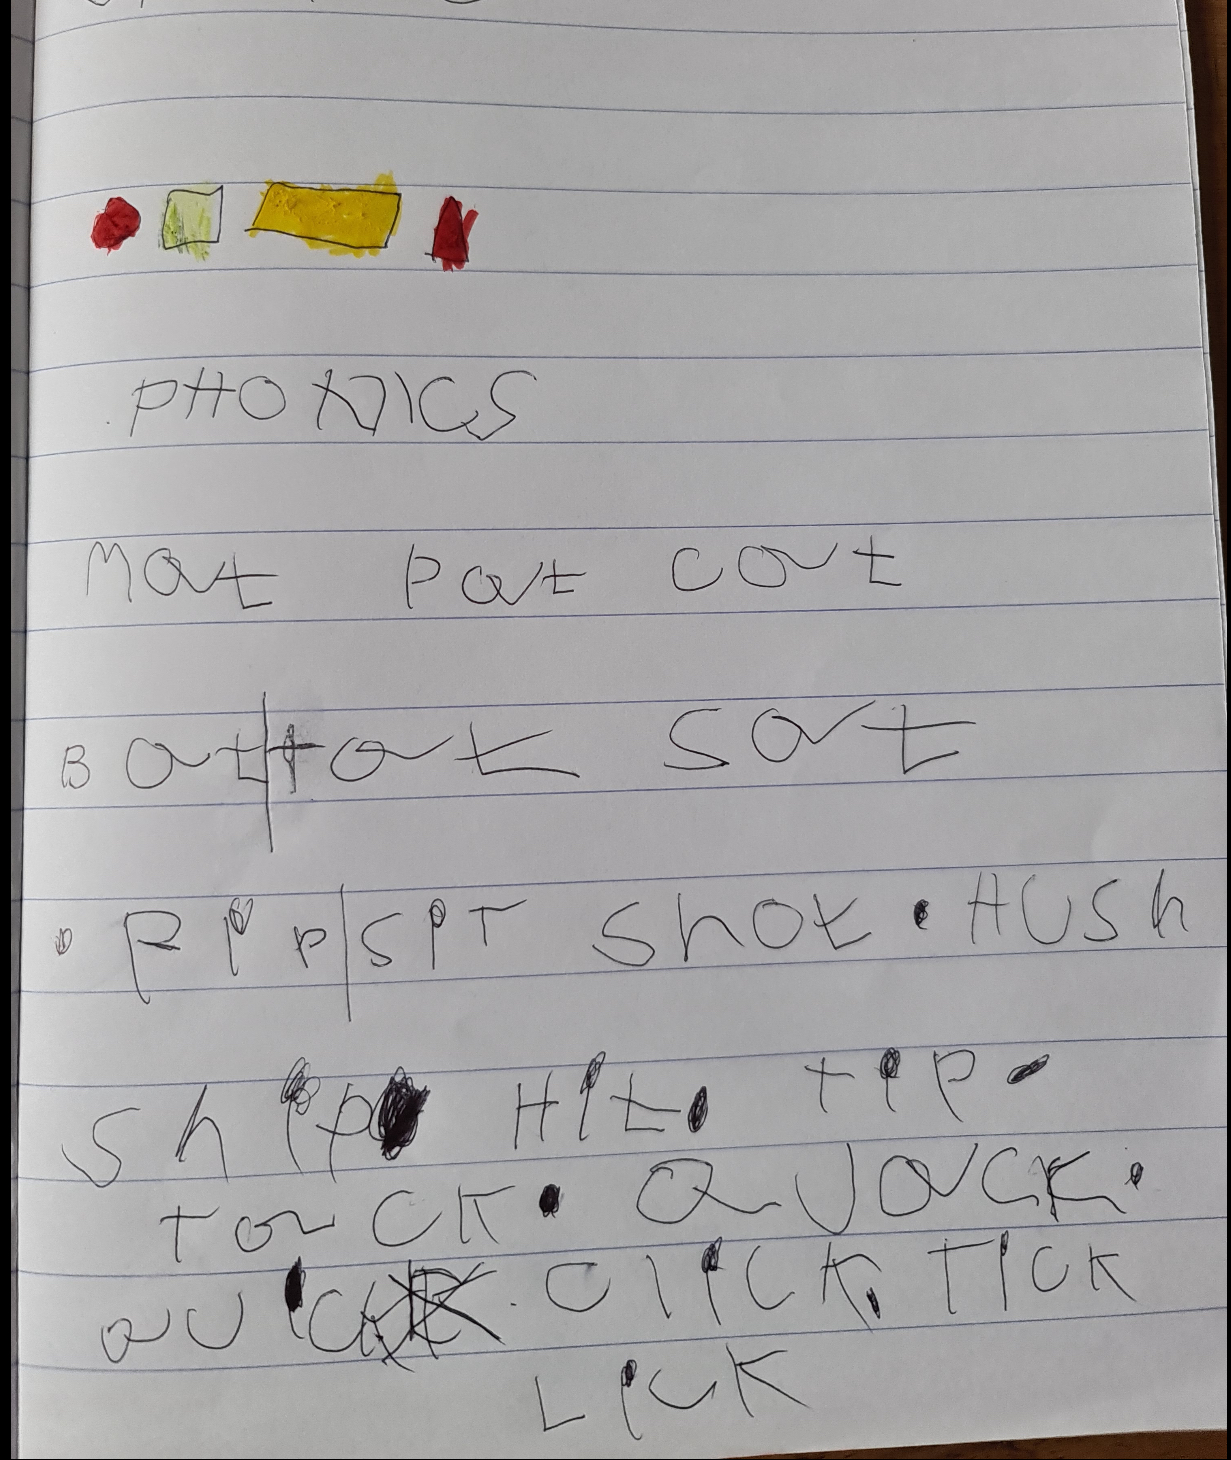 PHONICS
Mat Pat cat
Bat|tat Sat
• Pip|SPiT Shot • HUSh
Ship HiT. TiP •
TaCK • QUaCK.
QUiCK. CliCK, TiCK
LiCK